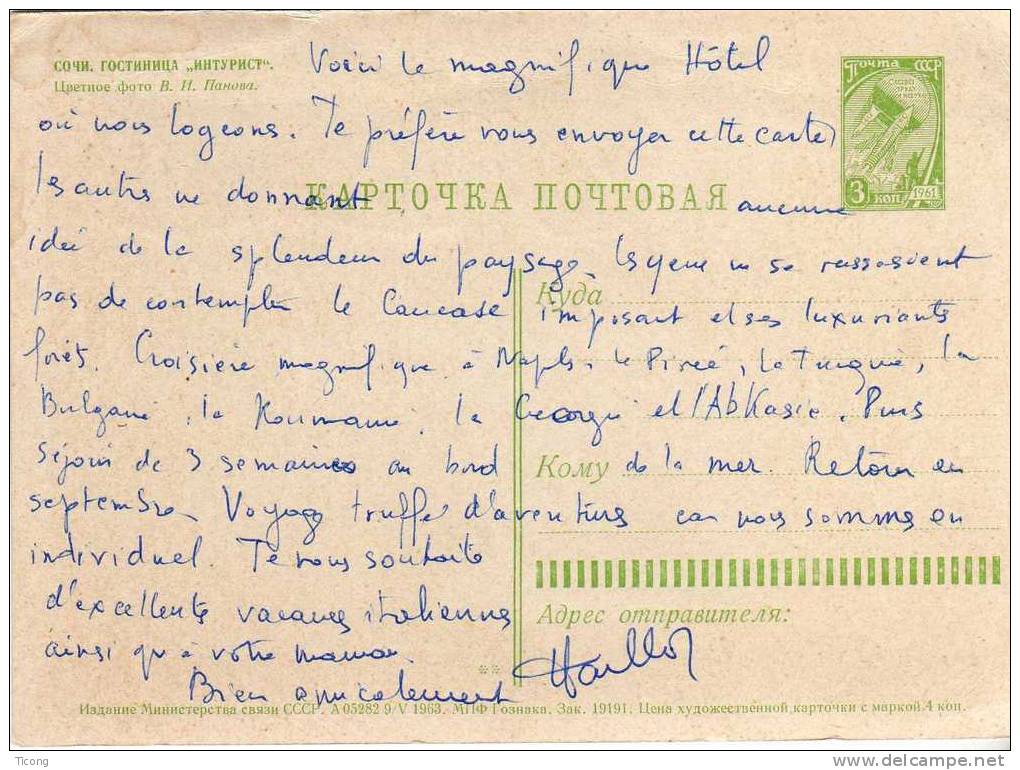 СОЧИ. ГОСТИНИЦА „ИНТУРИСТ".
Цветное фото В. И. Панова.
ПОЧТА СССР
3 КОП
1961
КАРТОЧКА ПОЧТОВАЯ
Voici le magnifique Hôtel
où nous logeons. Je préfère vous envoyer cette carte,
les autres ne donnant aucune
idée de la splendeur du paysage. Les yeux ne se rassasient
pas de contempler le Caucase imposant et ses luxuriants
forêts. Croisière magnifique à Naples, le Pirée, la Turquie, la
Bulgarie, la Roumanie, la Georgie et l'Abkasie. Puis
séjour de 3 semaines au bord de la mer. Retour en
septembre. Voyage truffé d'aventures car nous sommes en
individuel. Je vous souhaite
d'excellentes vacances italiennes
ainsi qu'à votre maman.
Bien amicalement
Куда
Кому
Адрес отправителя:
Издание Министерства связи СССР. А 05282 9/V 1963. МПФ Гознака. Зак. 19191. Цена художественной карточки с маркой 4 коп.
Ticong
delcampe.net